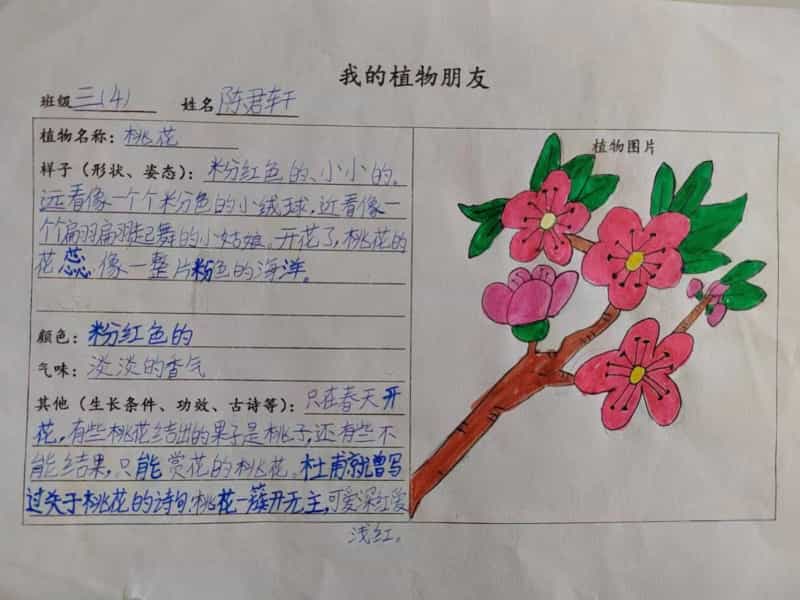 我的植物朋友
班级 三(4) 姓名 陈君轩
植物名称：桃花
样子（形状、姿态）：粉红色的、小小的。
远看像一个个粉色的小绒球，近看像一
个个翩翩起舞的小姑娘。开花了，桃花的
花蕊像一整片粉色的海洋。
颜色：粉红色的
气味：淡淡的香气
其他（生长条件、功效、古诗等）：只在春天开
花，有些桃花结出的果子是桃子，还有些不
能结果，只能赏花的桃花。杜甫就曾写
过关于桃花的诗句：桃花一簇开无主，可爱深红爱
浅红。
植物图片